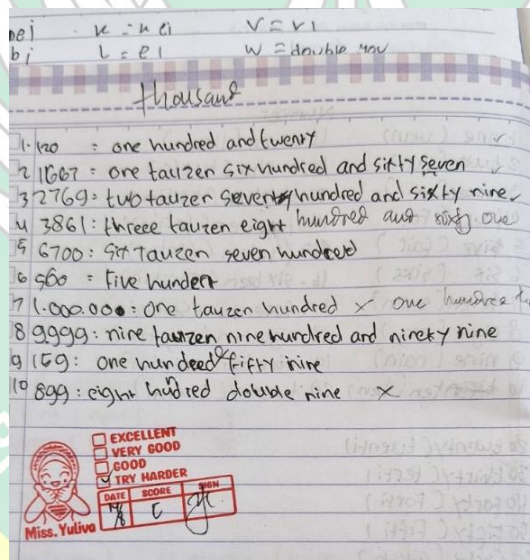 nej k = kei V = vi
bi L = el W = double you
thousand
1. 120 : one hundred and twenty
2 1667 : one tauzen six hundred and sixty seven
3 2769 : two tauzen seventy hundred and sixty nine
4 3861 : threee tauzen eight hundred and sixty one
5 6700 : Six Tauzen seven hundred
6 560 = Five hundert
7 1.000.000 : one tauzen hundred x one hundred
8 9.999 : nine tauzen nine hundred and ninety nine
9 159 : one hundeed & fifty nine
10 899 : eight hudred double nine x
EXCELLENT
VERY GOOD
GOOD
TRY HARDER
DATE SCORE SIGN
C
Miss. Yuliva